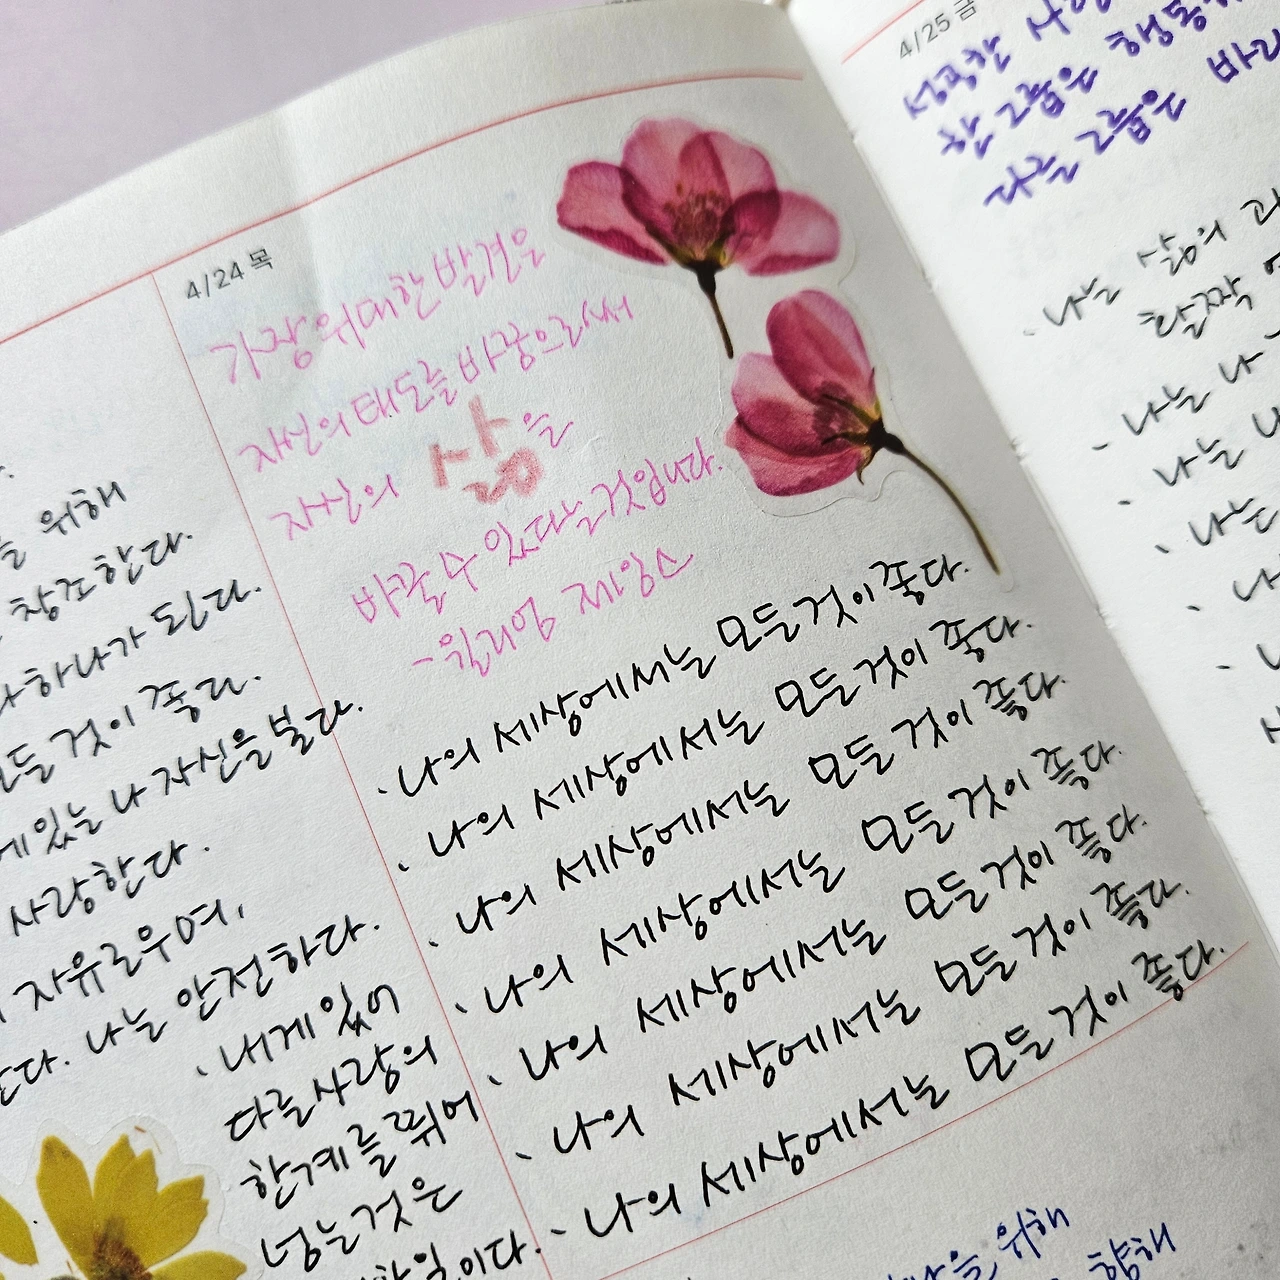 4/24 목
가장 위대한 발견은
자신의 태도를 바꿈으로써
자신의 삶을
바꿀 수 있다는 것입니다.
-윌리엄 제임스
· 나의 세상에서는 모든 것이 좋다.
· 나의 세상에서는 모든 것이 좋다.
· 나의 세상에서는 모든 것이 좋다.
· 나의 세상에서는 모든 것이 좋다.
· 나의 세상에서는 모든 것이 좋다.
· 나의 세상에서는 모든 것이 좋다.
· 나의 세상에서는 모든 것이 좋다.
위해
창조한다.
하나가 된다.
것이 좋다.
있는 나 자신을 본다.
사랑한다.
자유로우며,
나는 안전하다.
· 내게 있어
다른 사람의
한계를 뛰어
넘는 것은
4/25 금
성공한
한 그룹은
다른 그룹은
· 나는 삶의
활짝
· 나는 나
· 나는
· 나는
위해
향해